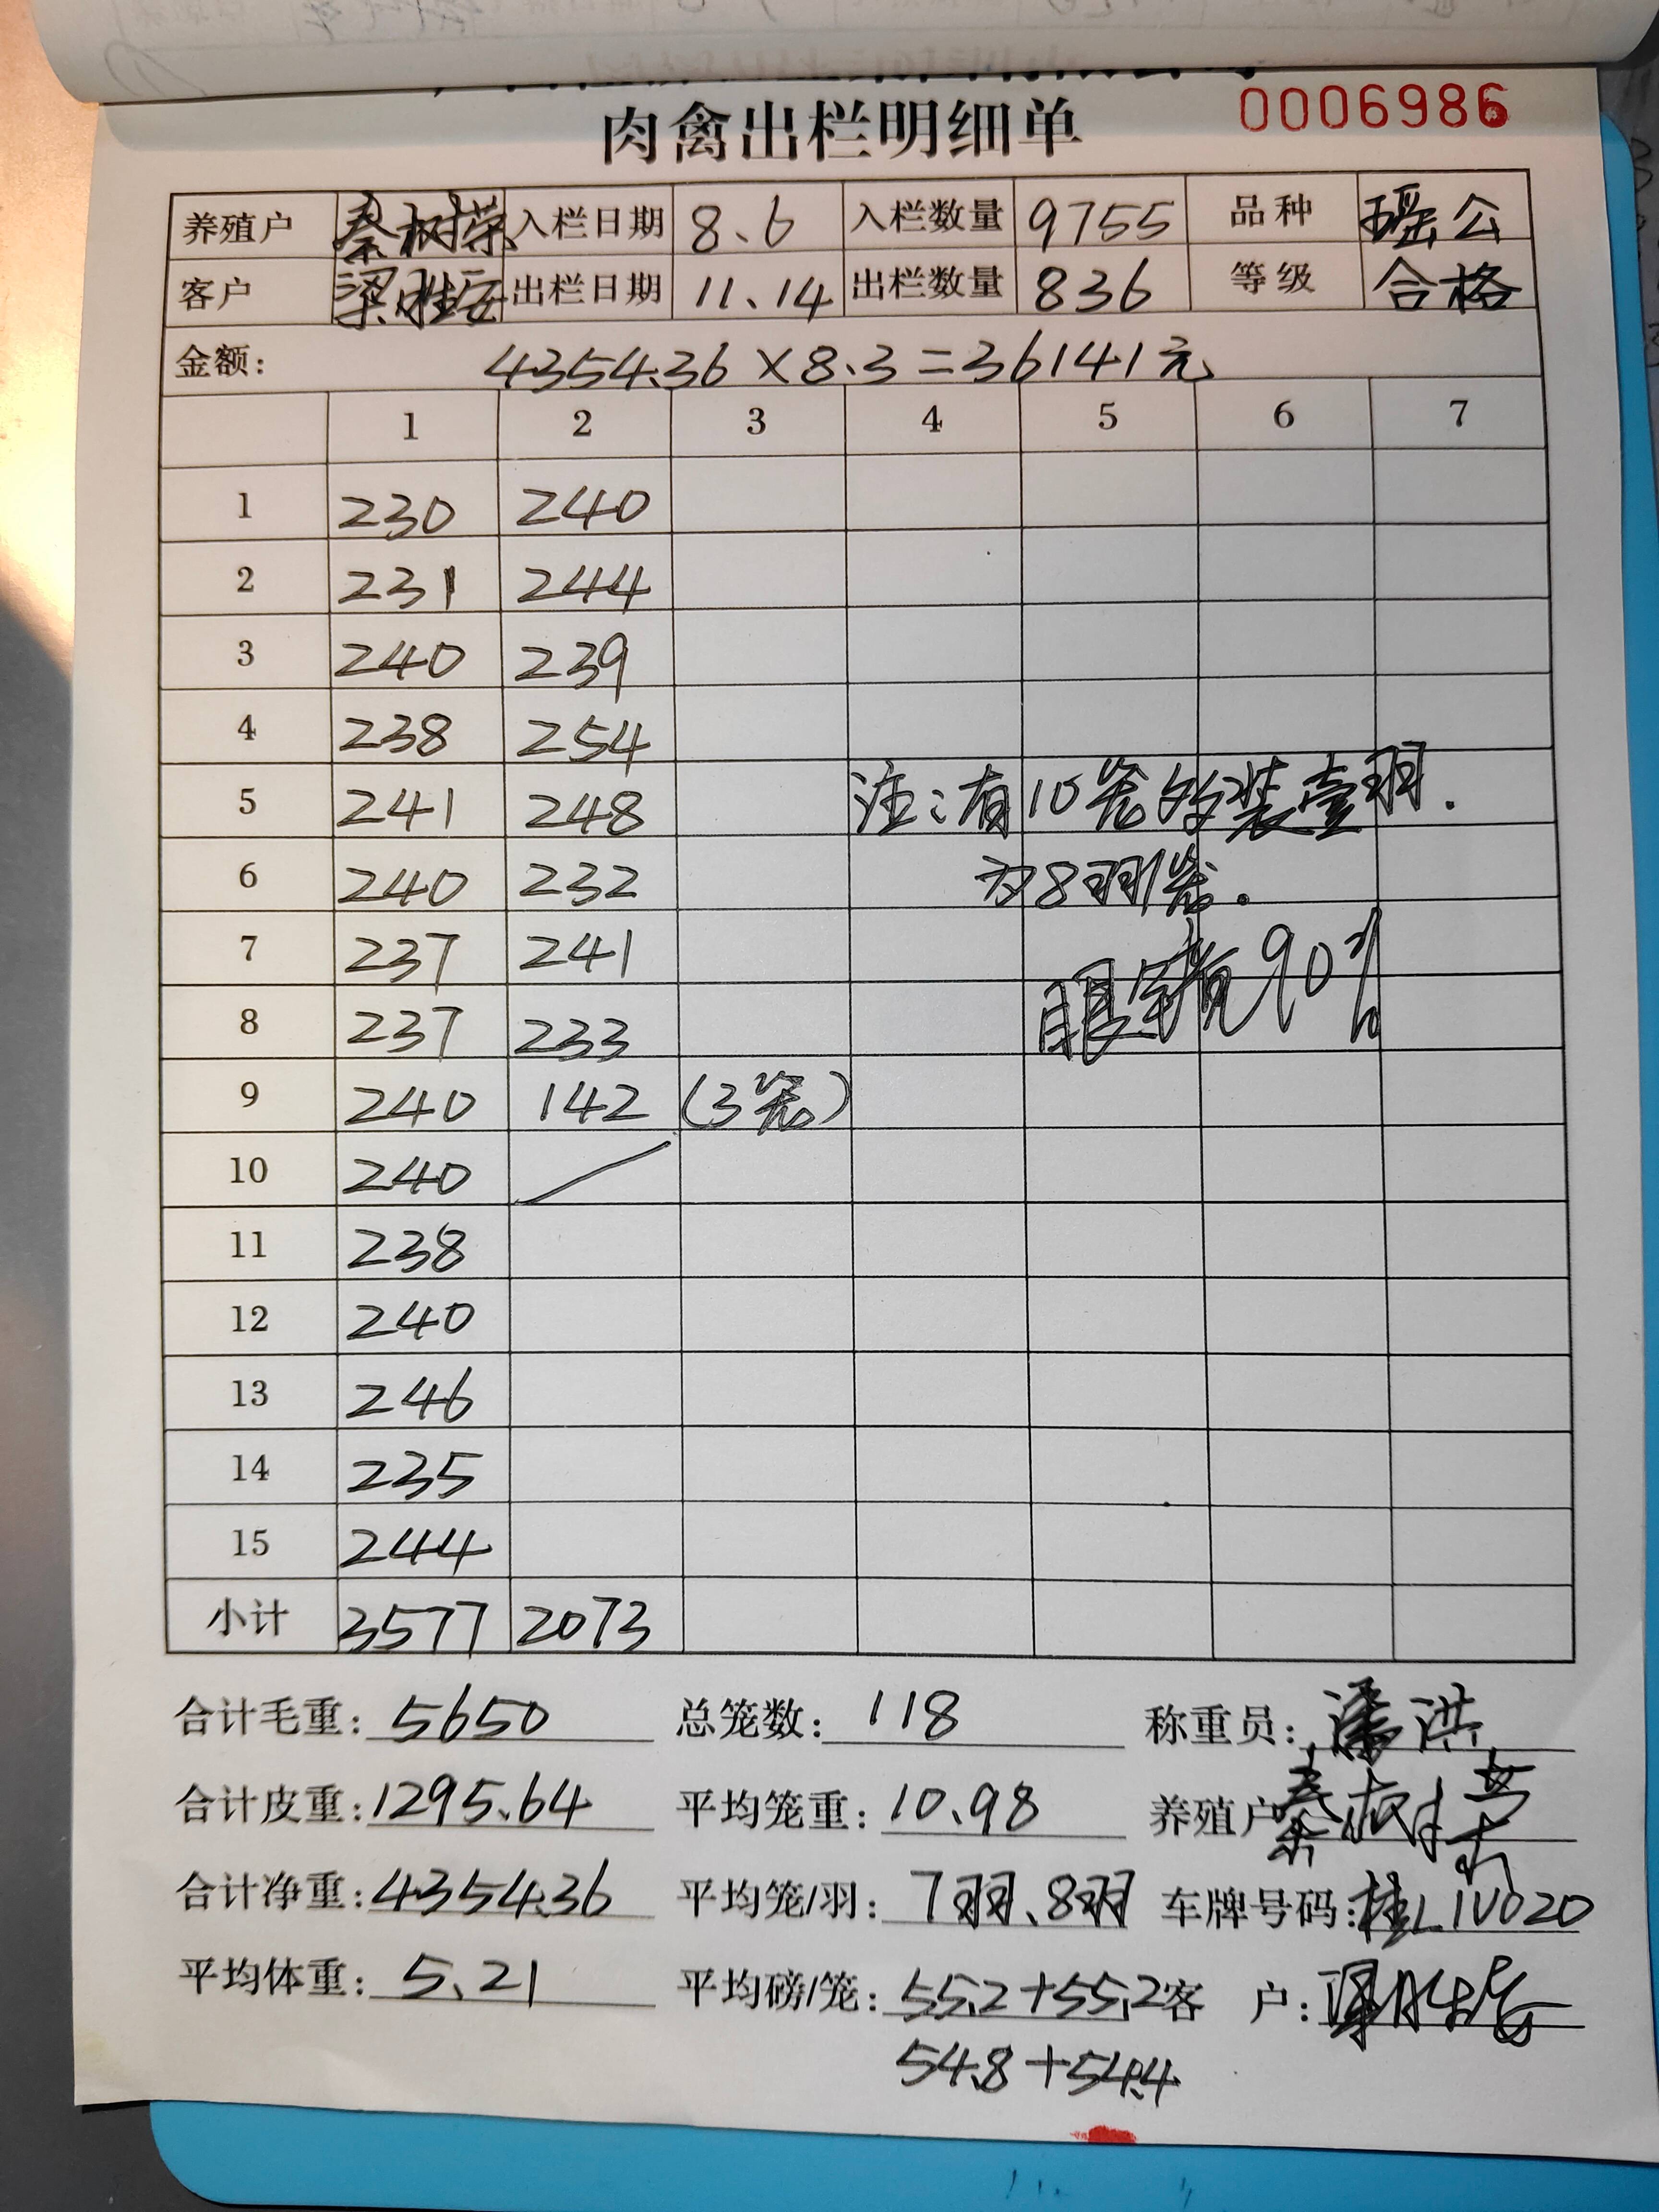 肉禽出栏明细单 0006986
养殖户 秦树荣 入栏日期 8.6 入栏数量 9755 品种 瑶公
客户 梁胜 出栏日期 11.14 出栏数量 836 等级 合格
金额: 4354.36×8.3=36141元
1 2 3 4 5 6 7
1 230 240
2 231 244
3 240 239
4 238 254
5 241 248 注:有10笼的装壹羽.
6 240 232 为8羽1笼.
7 237 241
眼 90%
8 237 233
9 240 142 (3笼)
10 240
11 238
12 240
13 246
14 235
15 244
小计 3577 2073
合计毛重: 5650 总笼数: 118 称重员: 潘洪
合计皮重: 1295.64 平均笼重: 10.98 养殖户 秦树荣
合计净重: 4354.36 平均笼/羽: 7羽、8羽 车牌号码: 桂L1V020
平均体重: 5.21 平均磅/笼: 55.2+55.2 客 户:
54.8+54.4